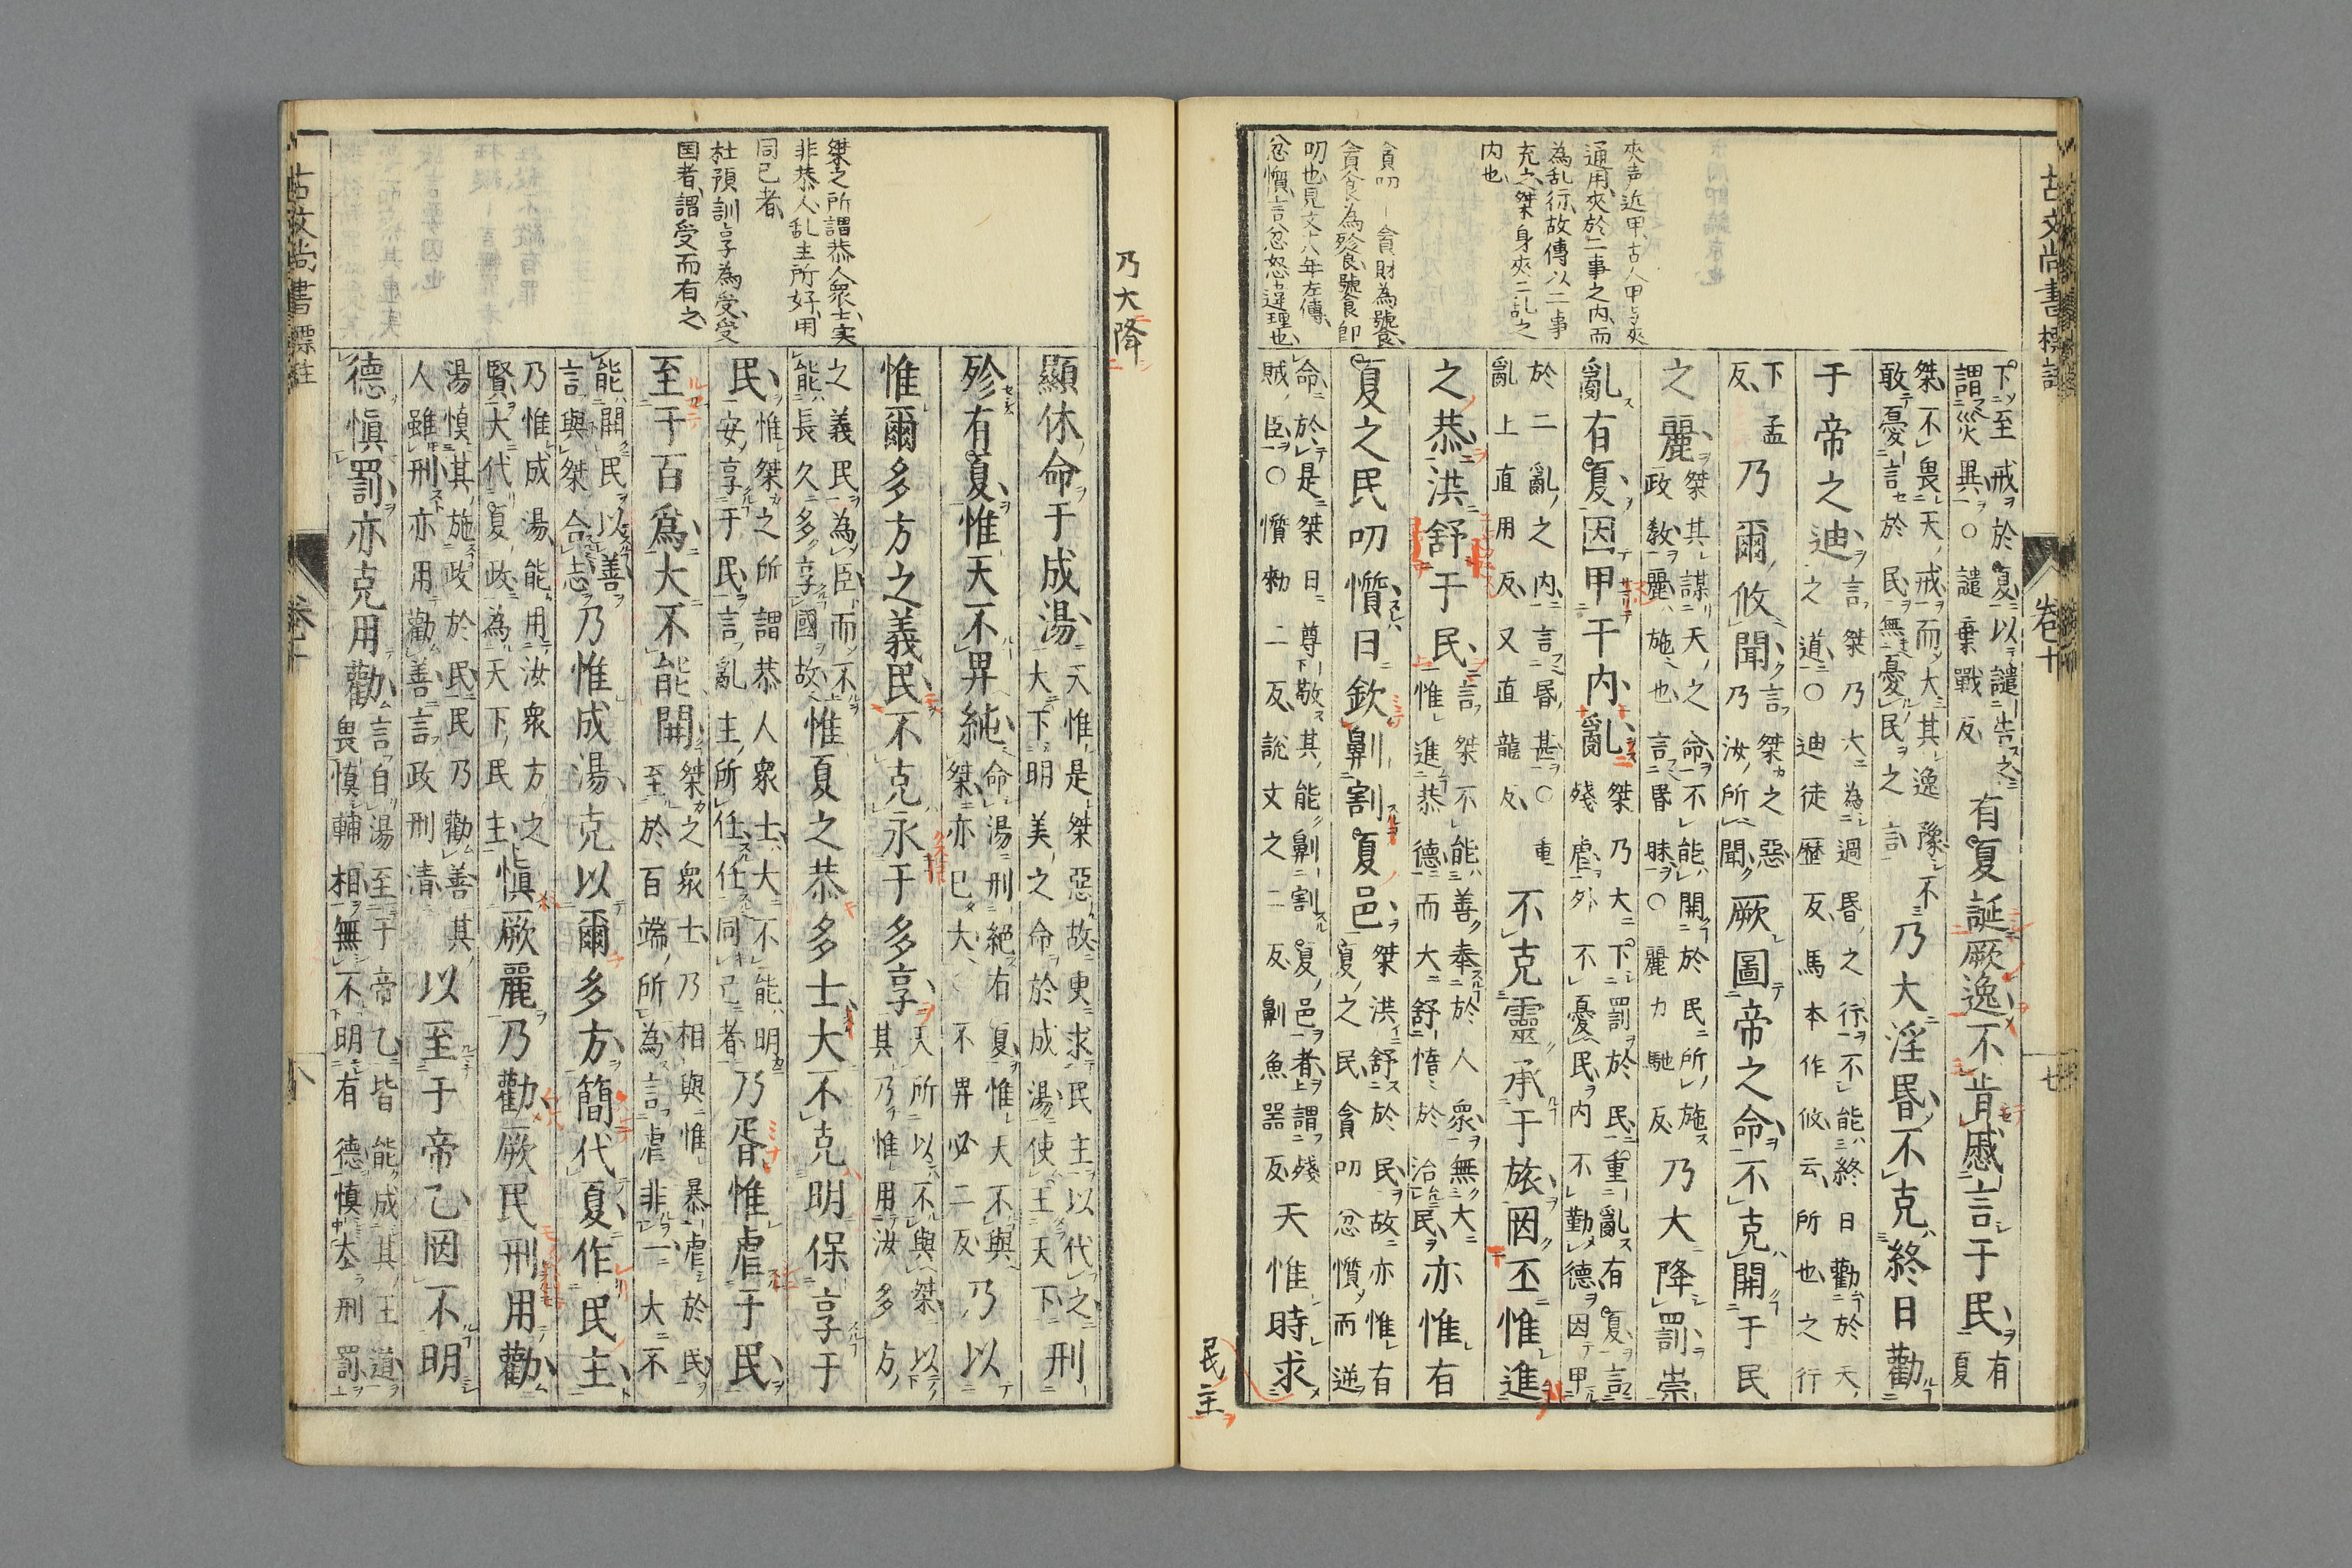 古文尚書標註
卷十
七
夾声近甲、古人甲与夾
通用、夾於二事之内、而
為乱行、故傳以二事
充之、桀身夾二乱之
内也
貪叨 貪財為號食
貪食為殄食、號食即
叨也、見文十八年左傳、
忿懫、言忿怒違理也、
下至戒於夏以譴告之
謂災異○譴棄戰反
有夏誕厥逸不肯慼言于民
有
夏
桀不畏天戒而大其逸豫不
敢憂言於民無憂民之言
乃大淫昬不克終日勸
于帝之迪
言桀乃大為過昬之行不能終日勸於天
之道○迪徒歷反馬本作攸云所也之行
下孟
反
乃爾攸聞
言桀之惡
乃汝所聞
厥圖帝之命不克開于民
之麗
桀其謀天之命不能開於民所施
政教麗施也言昬昧○麗力馳反
乃大降罰崇
亂有夏因甲于内亂
桀乃大下罰於民重亂有夏言
殘虐外不憂民内不勤德因甲
於二亂之内言昬甚○重
亂上直用反又直龍反
不克靈承于旅罔丕惟進
之恭洪舒于民
言桀不能善奉於人衆無大
惟進恭德而大舒惰於治民
亦惟有
夏之民叨懫日欽劓割夏邑
桀洪舒於民故亦惟有
夏之民貪叨忿懫而逆
命於是桀日尊敬其能劓割夏邑者謂殘
賊臣○懫勑二反說文之二反劓魚器反
天惟時求
民主
乃大降
桀之所謂恭人衆士、実
非恭人、乱主所好、用
同己者、
杜預訓享為受、受
国者、謂受而有之、
顯休命于成湯
天惟是桀惡故更求民主以代之
大下明美之命於成湯使王天下
刑
殄有夏惟天不畀純
命湯刑絕有夏惟天不與
桀亦已大 不畀必二反
乃以
惟爾多方之義民不克永于多享
天所以不與桀以
其乃惟用汝多方
之義民為臣而不
能長久多享國故
惟夏之恭多士大不克明保享于
民
惟桀之所謂恭人衆士大不能明
安享于民言亂主所任任同己者
乃胥惟虐于民
至于百為大不能開
桀之衆士乃相與惟暴虐於民
至於百端所為言虐非一大不
能開民以善
言與桀合志
乃惟成湯克以爾多方簡代夏作民主
乃惟成湯能用汝衆方之
賢大代夏政為天下民主
慎厥麗乃勸厥民刑用勸
湯慎其施政於民民乃勸善其
人雖刑亦用勸善言政刑清
以至于帝乙罔不明
德慎罰亦克用勸
言自湯至于帝乙皆能成其王道
畏慎輔相無不明有德慎去刑罰
古文尚書標註
卷十
八